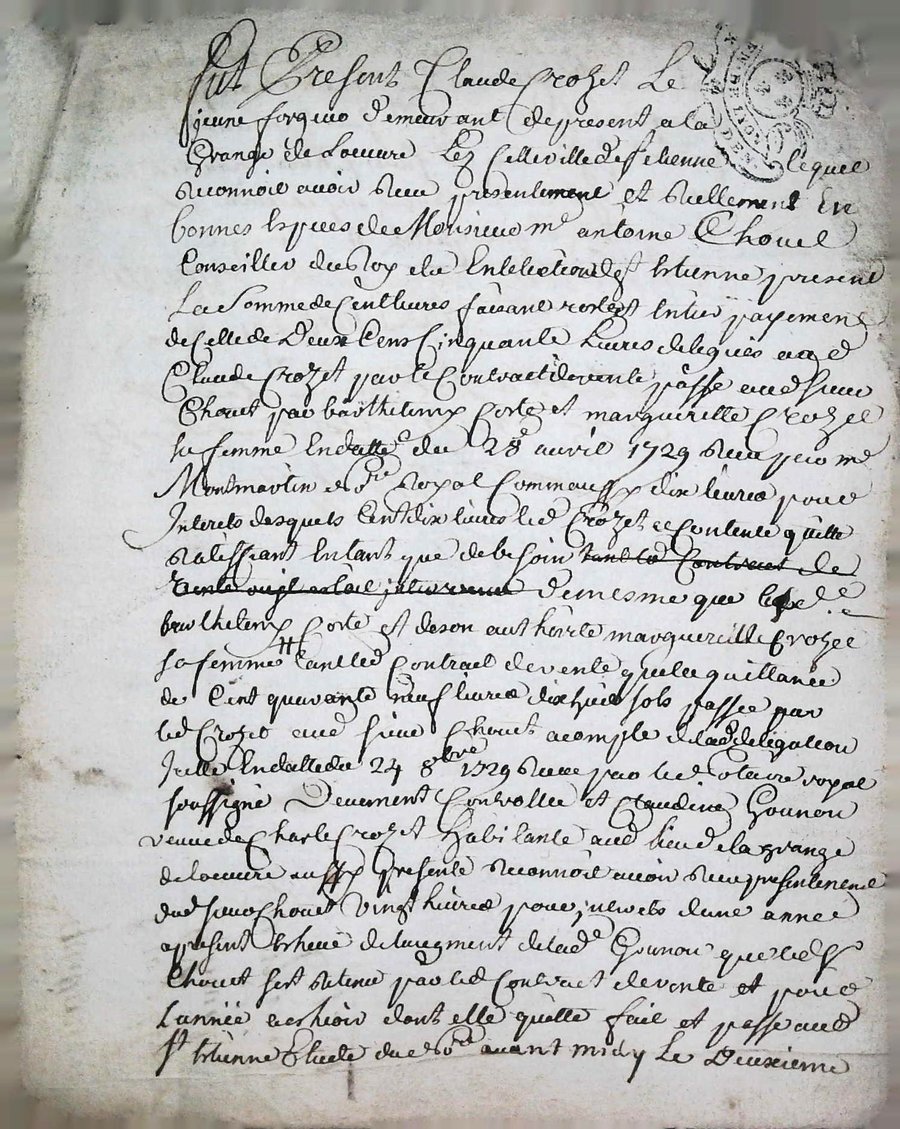 fut Present Claude Crozet Le
jeune forgeur demeurant de present a la
Grange de Loeuvre Lez Cette ville de St etienne lequel
reconnoit avoir receu presentement et reellement En
bonnes Especes de Monsieur me antoine Chovet
Conseiller du Roy En Lelection de St Etienne present
La Somme de Cent livres faisant reste et Entier payement
de Celle de Deux Cens Cinquante Livres deleguées aud
Claude Crozet par le Contract de vente passé aud sieur
Chovet par barthelemy Coste et margueritte Crozet
sa femme En datte du 28e avril 1729 receu par me
Montmartin Nore Royal Comme aussy dix livres pour
Interets desquels Cent dix livres led Crozet Se Contente quitte
ratiffiant Entant que de besoin tant led Contract de
Vente de mesme que led
barthelemy Coste et de son authorité margueritte Crozet
sa femme tant led Contract de vente que la quittance
de Cent quarante neuf livres dix huit sols passée par
led Crozet aud sieur Chovet acompte de lad delegation
Icelle En datte du 24 8bre 1729 receu par led Notaire royal
soussigné Deuement Controllée et Claudine Gounon
veuve de Charle Crozet habitante aud lieu de la grange
de Loeuvre aussy Presente reconnoit avoir receu presentement
dud sieur Chovet Vingt livres pour interets dune année
apresent Echeüe de laugment de lad Gounon que led Sr
Chovet Est retenu par led Contract de vente et pour
Lannée a eschoir dont elle quitte fait et passé aud
St Etienne Etude dud Nore avant midy Le Deuxieme